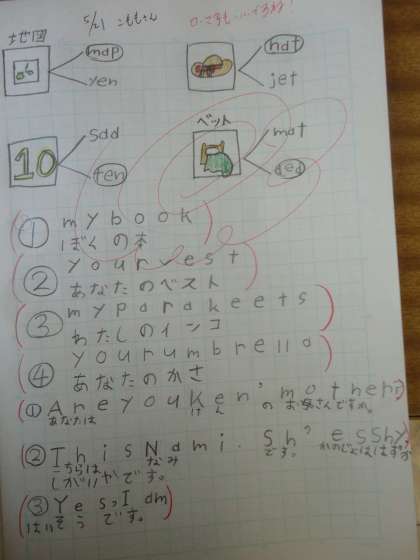 5/21 こももさん
地図
map
yen
hat
jet
10
sad
ten
ベット
mat
ded
① my book
ぼくの本
② your vest
あなたのベスト
③ my parakeets
わたしのインコ
④ your umbrella
あなたのかさ
① Are you Ken's mother?
あなたは けん の お母さんですか。
② This Nami. Sh' es Shy.
こちらは なみ です。 かのじょは
しがいやです。
③ Yes, I am
はいそうです。